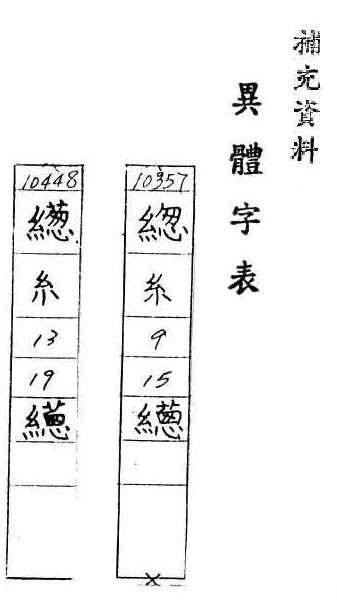 補充資料
異體字表
10357
緫
糸
9
15
繱
10448
糸
13
19
繱